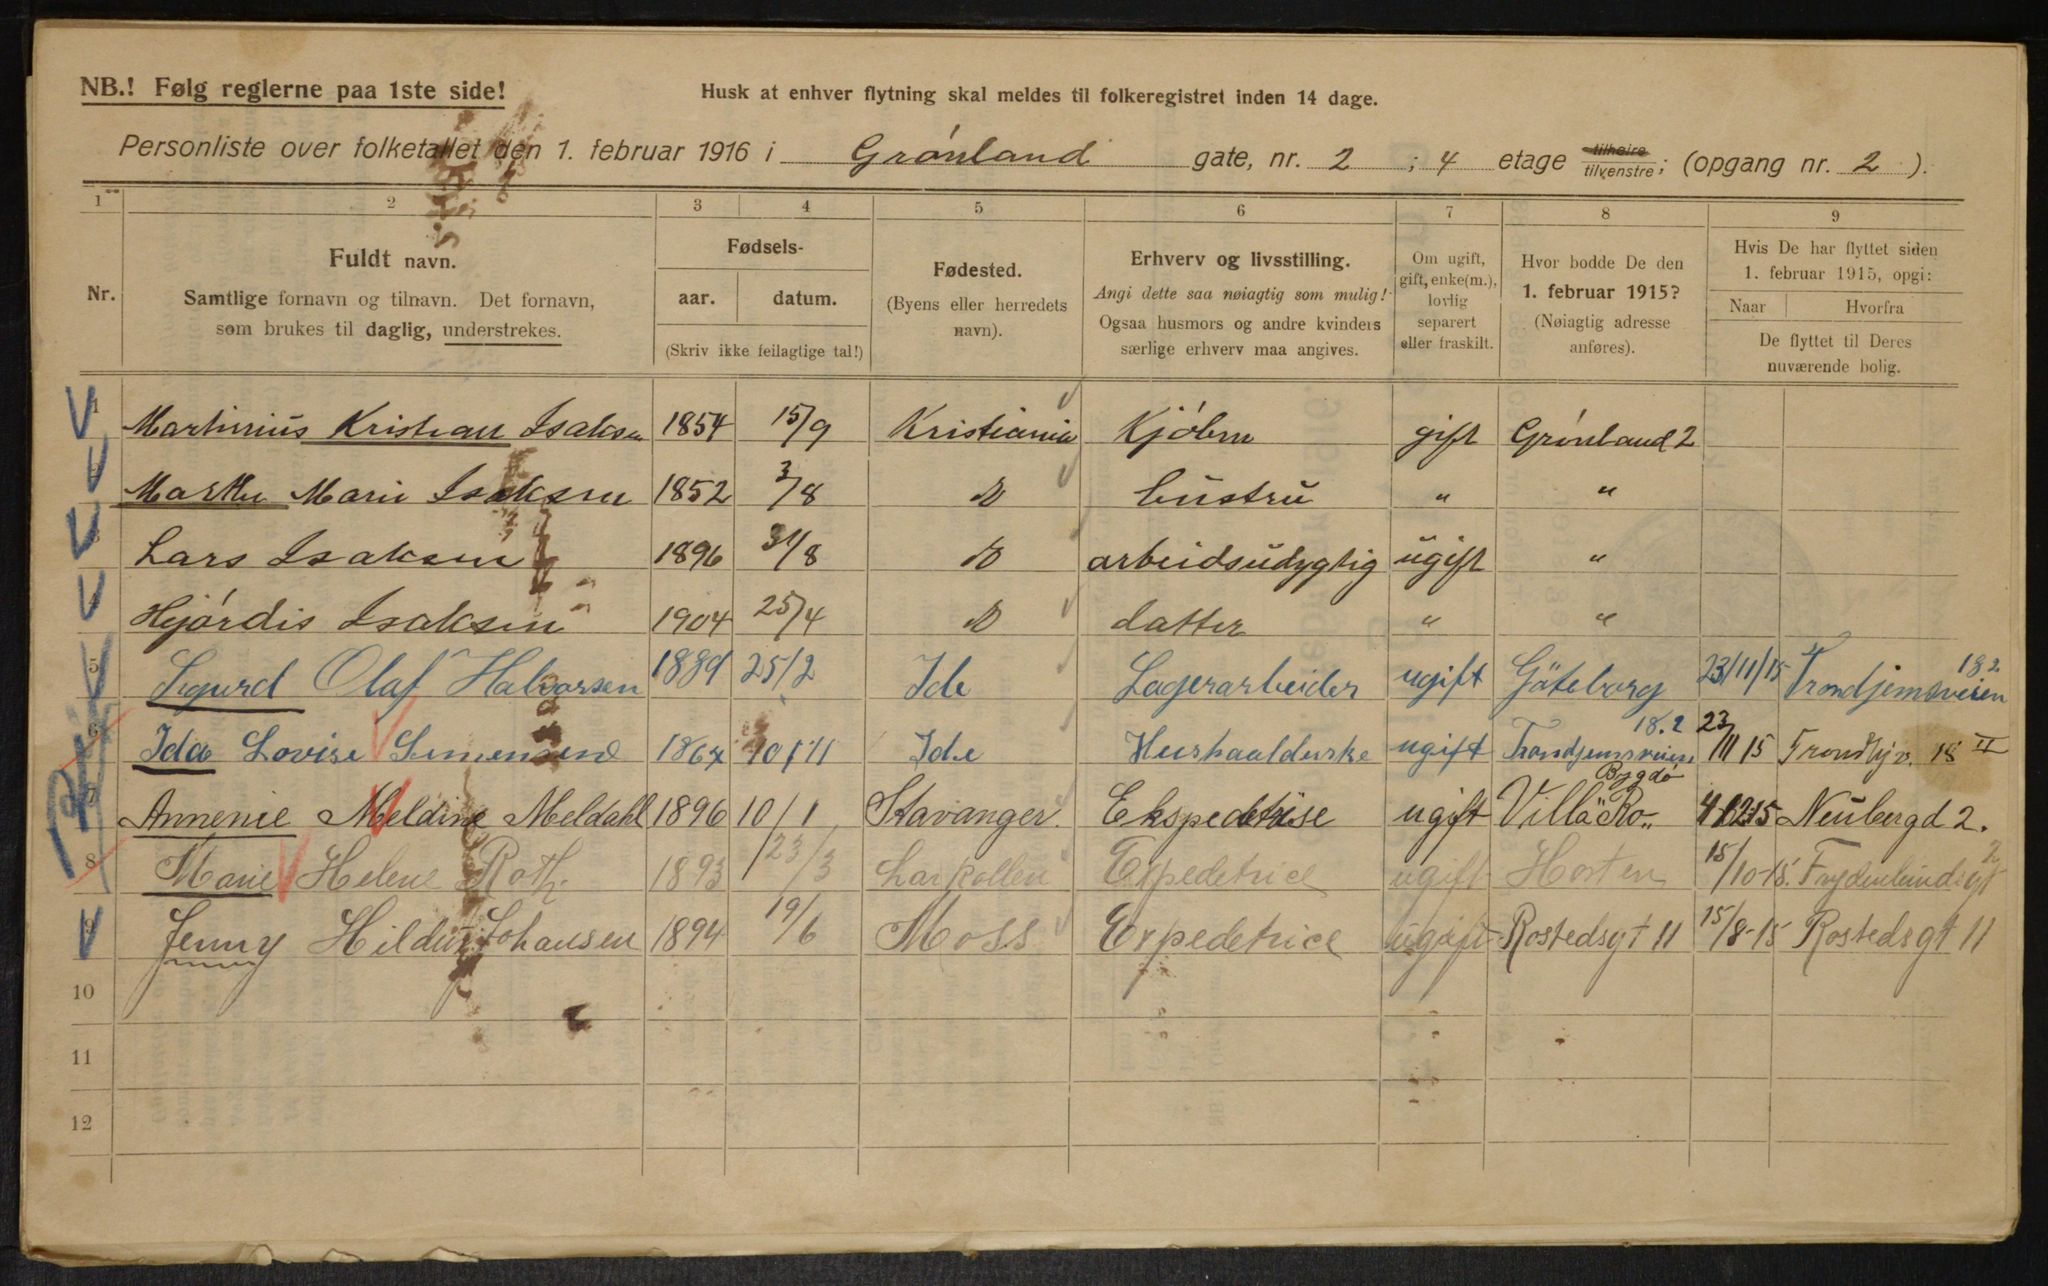 NB.! Følg reglerne paa 1ste side!
Husk at enhver flytning skal meldes til folkeregistret inden 14 dage.
Personliste over folketallet den 1. februar 1916 i Grønland gate, nr. 2 ; 4 etage tilhøire tilvenstre; (opgang nr. 2 ).
1 2 3 4 5 6 7 8 9
Nr.
Fuldt navn.
Samtlige fornavn og tilnavn. Det fornavn,
som brukes til daglig, understrekes.
Fødsels-
aar. datum.
(Skriv ikke feilagtige tal!)
Fødested.
(Byens eller herredets
navn).
Erhverv og livsstilling.
Angi dette saa nøiagtig som mulig!
Ogsaa husmors og andre kvinders
særlige erhverv maa angives.
Om ugift,
gift, enke(m.),
lovlig
separert
eller fraskilt.
Hvor bodde De den
1. februar 1915?
(Nøiagtig adresse
anføres).
Hvis De har flyttet siden
1. februar 1915, opgi:
Naar Hvorfra
De flyttet til Deres
nuværende bolig.
1 Martinius Kristian Isaksen 1854 15/9 Kristiania Kjøbm gift Grønland 2
2 Marthe Marie Isaksen 1852 3/8 D hustru " "
3 Lars Isaksen 1896 31/8 D arbeidsudygtig ugift "
Hjórdis Isaksen 1904 25/4 D datter " "
5 Sigurd Olaf Halvorsen 1889 25/2 Ide Lagerarbeider ugift Göteborg 23/11/15 Trondjemsveien 18.2
6 Ida Lovise Simensen 1867 10/11 Ide Hushaalderske ugift Trondjemsveien 18.2 23/11 15 Trondhjv. 18 II
Annenie Meldine Meldahl 1896 10/1 Stavanger Ekspeditrise ugift Villa Ro Bygdø 15 Neubergd 2.
8 Marie Helene Roth. 1893 23/3 Larkollen Expedetrice ugift Horten 15/10-15. Frydenlundsgt 2
9 Jenny Hildur Johansen 1894 19/6 Moss Expedetrice ugift Rostedsgt 11 15/8-15 Rostedsgt 11
10
11
12